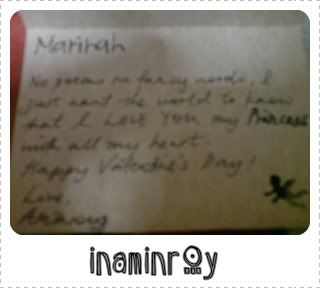 Marinah
No poems no fancy words, I
just want the world to know
that I LOVE YOU my Princess
with all my heart.
Happy Valentine's Day!
Love,
inaminroy